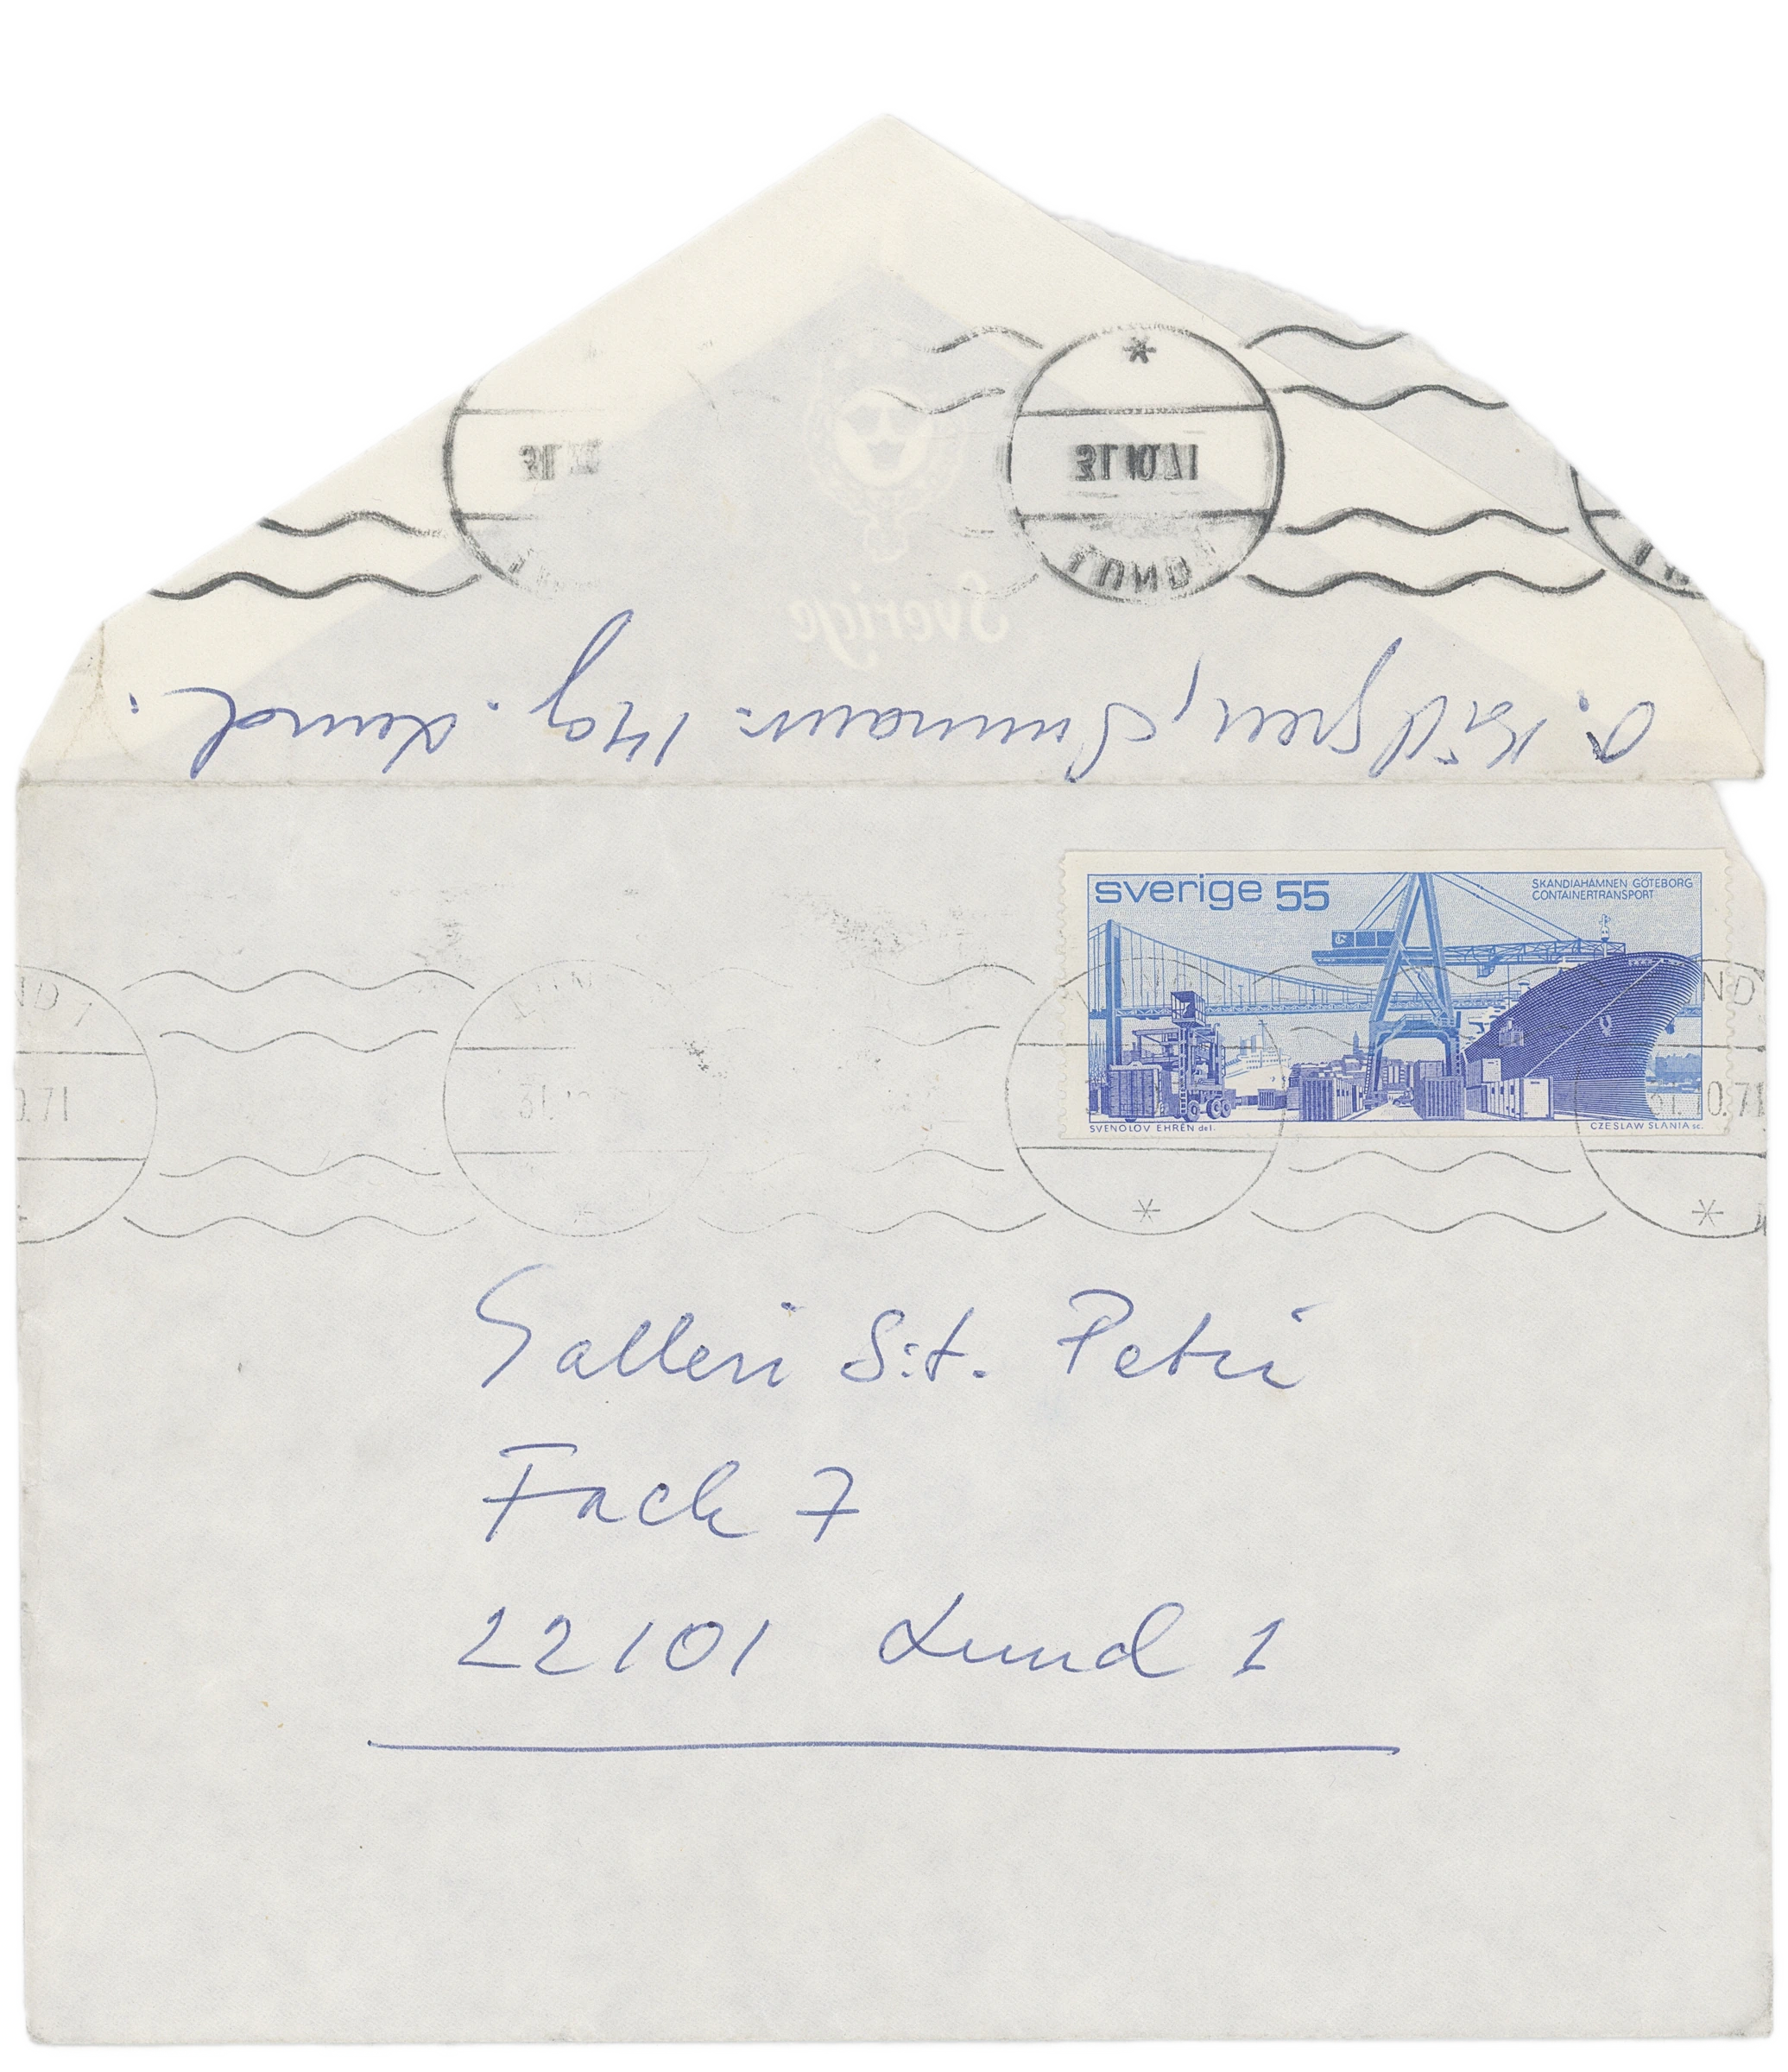 31.10.71
LUND
Sverige
Lund.
sverige 55
SKANDIAHAMNEN GÖTEBORG
CONTAINERTRANSPORT
SVENOLOV EHRÉN del.
CZESLAW SLANIA sc.
ND 1
0.71
31.
ND
0.71
Galleri S:t. Petri
Fack 7
22101 Lund 1